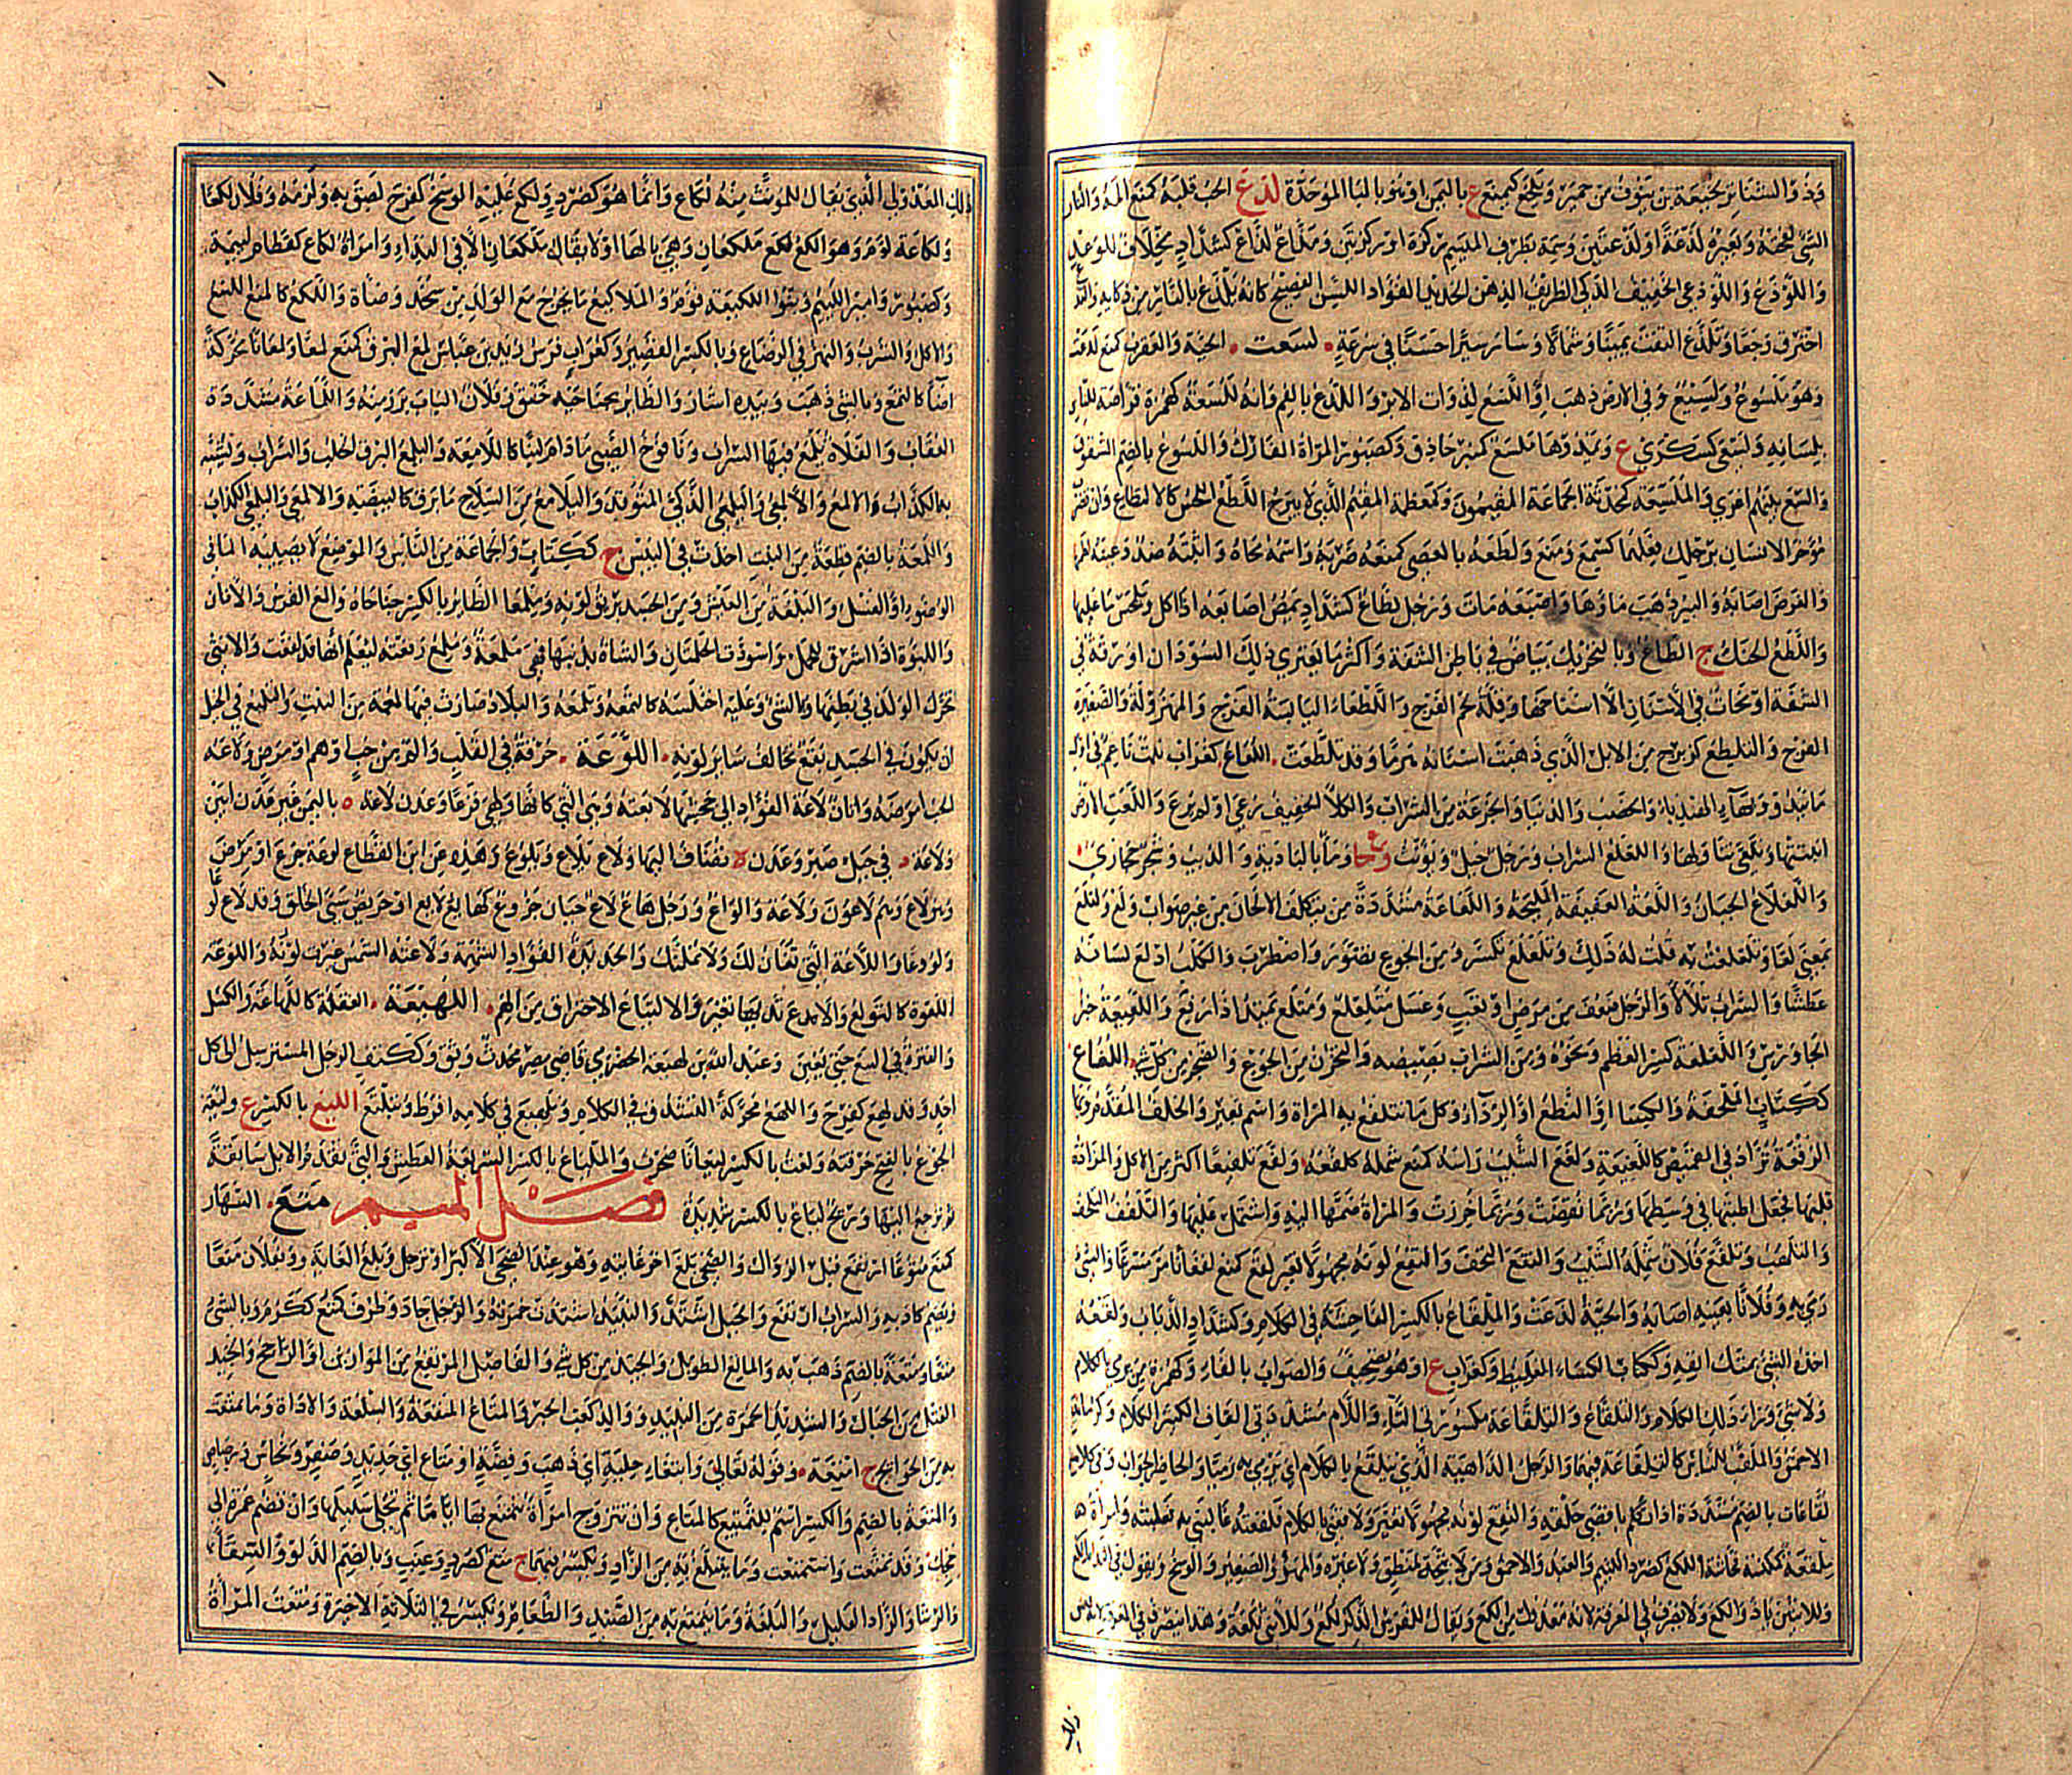 وذو الشناتر لخيعة بن ينوف من حمير ويلخع كيمنع ع باليمن او هو بالبا الموحدة لذع الحب قلبه كمنع آلمه والنار
الشئ لفحته وبعيره لذعة او لذعتين وسمه بطرف الميسم ركزة او ركزتين ومذاع لذاع كشداد مخلاف للوعد
واللوذع واللوذعى الخفيف الذكى الظريف الذهن الحديد الفؤاد اللسن الفصيح كانه يلذع بالنار من ذكايه والتذع
احترق وجعا وتلذع التفت يمينا وشمالا وسار سيرا حسنا في سرعة لسعت الحية والعقرب كمنع لدغت
وهو ملسوع ولسيع وفي الارض ذهب او اللسع لذوات الابر واللدغ بالفم وانه للسعة كهمزة قراصة للناس
بلسانه ولسعى كسكرى ع ويمد وهاد ملسع كمنبر حاذق وكصبور المراة الفارك واللسوع بالضم الشقوق
والسع بينهم اغرى والملسعة كمحدثة الجماعة المقيمون وكمعظمة المقيم الذي لا يبرح اللطع اللحس كالالتطاع وان تضرب
مؤخر الانسان برجلك فعلهما كسمع ومنع ولطعه بالعصى كمنعه ضربه واسمه محاه واثبته ضد وعينه لطمها
والغرض اصابه والبير ذهب ماؤها واصبعه مات ورجل لطاع كشداد يمص اصابعه اذا اكل ويلحس ما عليها
واللطع الحنك ج الطاع وبالتحريك بياض في باطن الشفة واكثر ما يعترى ذلك السودان او رقة في
الشفة او تحات في الاسنان الا اسناخها وقلة لحم الفرج واللطعاء اليابسة الفرج والمهزولة والصغيرة
الفرج والتلطع كزبرج من الابل الذي ذهبت اسنانه هرما وقد تلطعت اللعاع كغراب نبت ناعم في اول
ما يبدو وبهاء الهندباء والخصب والدنيا والجرعة من الشراب والكلأ الخفيف رعى او لم يرع والعت الارض
انبتتها وتلعى تناولها واللعلع السراب ورجل جبل ويؤنث وع وماء بالبادية والذيب وشجر حجازى
واللعلاع الجبان واللعة العفيفة المليحة واللعاعة مشددة من يتكلف الالحان من غير صواب ولع ولعلع
بمعنى لعا وتلعلعت به قلت له ذلك وتلعلع تكسر ومن الجوع تضور واضطرب والكلب ادلع لسانه
عطشا والسراب تلألأ والرجل ضعف من مرض او تعب وعسل متلعلع ومتلع يمتد اذا رفع واللعيعة خبز
الجاورس واللعلعة كسر العظم ونحوه ومن السراب بصيصه والتحزن من الجوع والضجر من كل شئ اللفاع
ككتاب الملحفة والكسا او النطع او الرداء وكل ما تتلفع به المراة واسم بعير والخلف المقدم وبها
الرقعة تزاد في القميص كاللفيعة ولفع الشيب راسه كمنع شمله كلفعه ولفع تلفيعا اكثر من الاكل والمزادة
قلبها فجعل اطبتها في وسطها وربما نقضت وربما خرزت والمراة ضمها اليه واشتمل عليها والتلفف التلحف
والتلهب وتلفع فلان شمله الشيب والتفع التحف والتفع لونه مجهولا تغير لقع كمنع لقعانا مر مسرعا والشئ
رمى به وفلانا بعينه اصابه والحية لدغت والملقاع بالكسر الفاحشة في الكلام وكشداد الذباب ولقعه
اخذه الشئ بمتك انفه وككتاب الكساء الغليظ وكغراب ع او هو تصحيف والصواب بالفاء وكهمزة من يرمى بالكلام
ولا شئ وراء ذلك الكلام والتلقاع والتلقاعة مكسورتى التاء واللام مشددتى القاف الكثير الكلام وكرمانة
الاحمق والملقب للناس كالتلقاعة فيهما والرجل الداهية الذي يتلقع بالكلام اي يرمى به رميا والحاضر الجواب وفي كلامه
لقاعات بالضم مشددة اذا تكلم باقصى حلقه والتقع لونه مجهولا تغير ولاقعنى بالكلام فلقعته غالبنى به فغلبته وامراة
ملقعة كمكنسة فحاشة اللكع كصرد اللئيم والعبد والاحمق ومن لا يتجه لمنطق ولا غيره والمهر والصغير والوسخ ويقول في النداء يا لكع
وللاثنين يا ذوى لكع ولا يصرف في المعرفة لانه معدول من لكع ويقال للفرس الذكر لكع وللانثى لكعة وهذا يصرف في المعرفة لانه ليس
ذلك المعدول الذي يقال للمؤنث منه لكاع وانما هو كصرد ولكع عليه الوسخ كفرح لصق به ولزمه وفلان لكعا
ولكاعة لؤم وهو الكع لكع ملكعان وهي بالها اولا يقال ملكعان الا في النداء وامراة لكاع كقطام لئيمة
وكصبور وامير اللئيم وبنو اللكيعة قوم والملاكيع ما يخرج مع الولد من سخد وصاة واللكع كالمنع اللسع
والاكل والشرب والنهز في الرضاع وبالكسر القصير وكغراب فرس زيد بن عباس لمع البرق كمنع لمعا ولمعانا محركة
اضاء كالتمع وبالشئ ذهب وبيده اشار والطائر بجناحيه خفق وفلان الباب برز منه واللماعة مشددة
العقاب والفلاة يلمع فيها السراب ويافوخ الصبى مادام لينا كاللامعة واليلمع البرق الخلب والسراب ويشبه
به الكذاب والالمع والالمعى واليلمعى الذكى المتوقد واليلامع من السلاح ما برق كالبيضة والالمعى واليلمعى الكذاب
واللمعة بالضم قطعة من النبت اخذت في اليبس ج ككتاب والجماعة من الناس والموضع لا يصيبه الماء في
الوضوء او الغسل والبلغة من العيش ومن الجسد بريق لونه وملمعا الطائر بالكسر جناحاه والمع الفرس والاتان
واللبوة اذا اشرق للحمل واسودت الحلمتان والشاة بذنبها فهي ملمعة وملمع رفعته ليعلم انها قد لقحت والانثى
تحرك الولد في بطنها وبالشئ وعليه اختلسه كالتمعه وتلمعه والبلاد صارت فيها لمعة من النبت والتلميع في الخيل
ان يكون في الجسد بقع تخالف سائر لونه اللوعة حرقة في القلب والم من حب او هم او مرض ولاعه
الحب امرضه واتان لاعة الفؤاد الى جحشها لائعته وهي التي كانها ولهى فزعا وعدن لاعة ة باليمن غير عدن ابين
ولاعة في جبل صبر وعدن ة تضاف اليها ولاع يلاع ويلوع وهذه عن ابن القطاع لوعة جزع او مرض
وهو لاع وهم لاعون ولاعة والواع ورجل هاع لاع جبان جزوع كهايع لايع او حريص سيئ الخلق وقد لاع لوعا
ولووعا واللاعة التي تغازلك ولا تمكنك والحديدة الفؤاد الشهمة ولاعته الشمس غيرت لونه واللوعة
اللعوة كاللولع والاع ثديها تغير والالتياع الاحتراق من الهم اللهيعة الغفلة كاللهاعة والكسل
والفترة في البيع حتى يغبن وعبد الله بن لهيعة الحضرمى قاضى مصر محدث وثق وككتف الرجل المسترسل الى كل
احد وقد لهع كفرح واللهع محركة التشدق في الكلام وتلهيع في كلامه افرط وتبلتع الليع بالكسر ع وليعة
الجوع بالفتح حرقته ولعت بالكسر ليعانا ضجرت والملياع بالكسر السريعة العطش والتي تقدم الابل سابقة
ثم ترجع اليها وريح لياع بالكسر شديدة فصل الميم متع النهار
كمنع متوعا ارتفع قبل الزوال والضحى بلغ اخر غايته وهو عند الضحى الاكبر او ترجل وبلغ الغاية وبفلان متعا
ويضم كاذبه والسراب ارتفع والحبل اشتد والنبيذ اشتدت حمرته والرجل جاد وظرف كمتع ككرم وبالشئ
متعا ومتعة بالضم ذهب به والماتع الطويل والجيد من كل شئ والفاضل المرتفع من الموازين او الراجح والجيد
الفتل من الحبال والشديد الحمرة من النبيذ ووالد كعب الحبر والمتاع المنفعة والسلعة والاداة وما تمتعت
به من الحوائج ج امتعة وقوله تعالى وابتغاء حلية اي ذهب وفضة او متاع اي حديد وصفر ونحاس ورصاص
والمتعة بالضم والكسر اسم للتمتيع كالمتاع وان تتزوج امراة تتمتع بها اياما ثم تخلى سبيلها وان تضم عمرة الى
حجك وقد تمتعت واستمتعت وما يتبلغ به من الزاد ويكسر فيهما ج متع كصرد وعنب وبالضم الدلو والسقاء
والرشا والزاد القليل والبلغة وما يتمتع به من الصيد والطعام ويكسر في الثلاثة الاخيرة ومتعت المراة